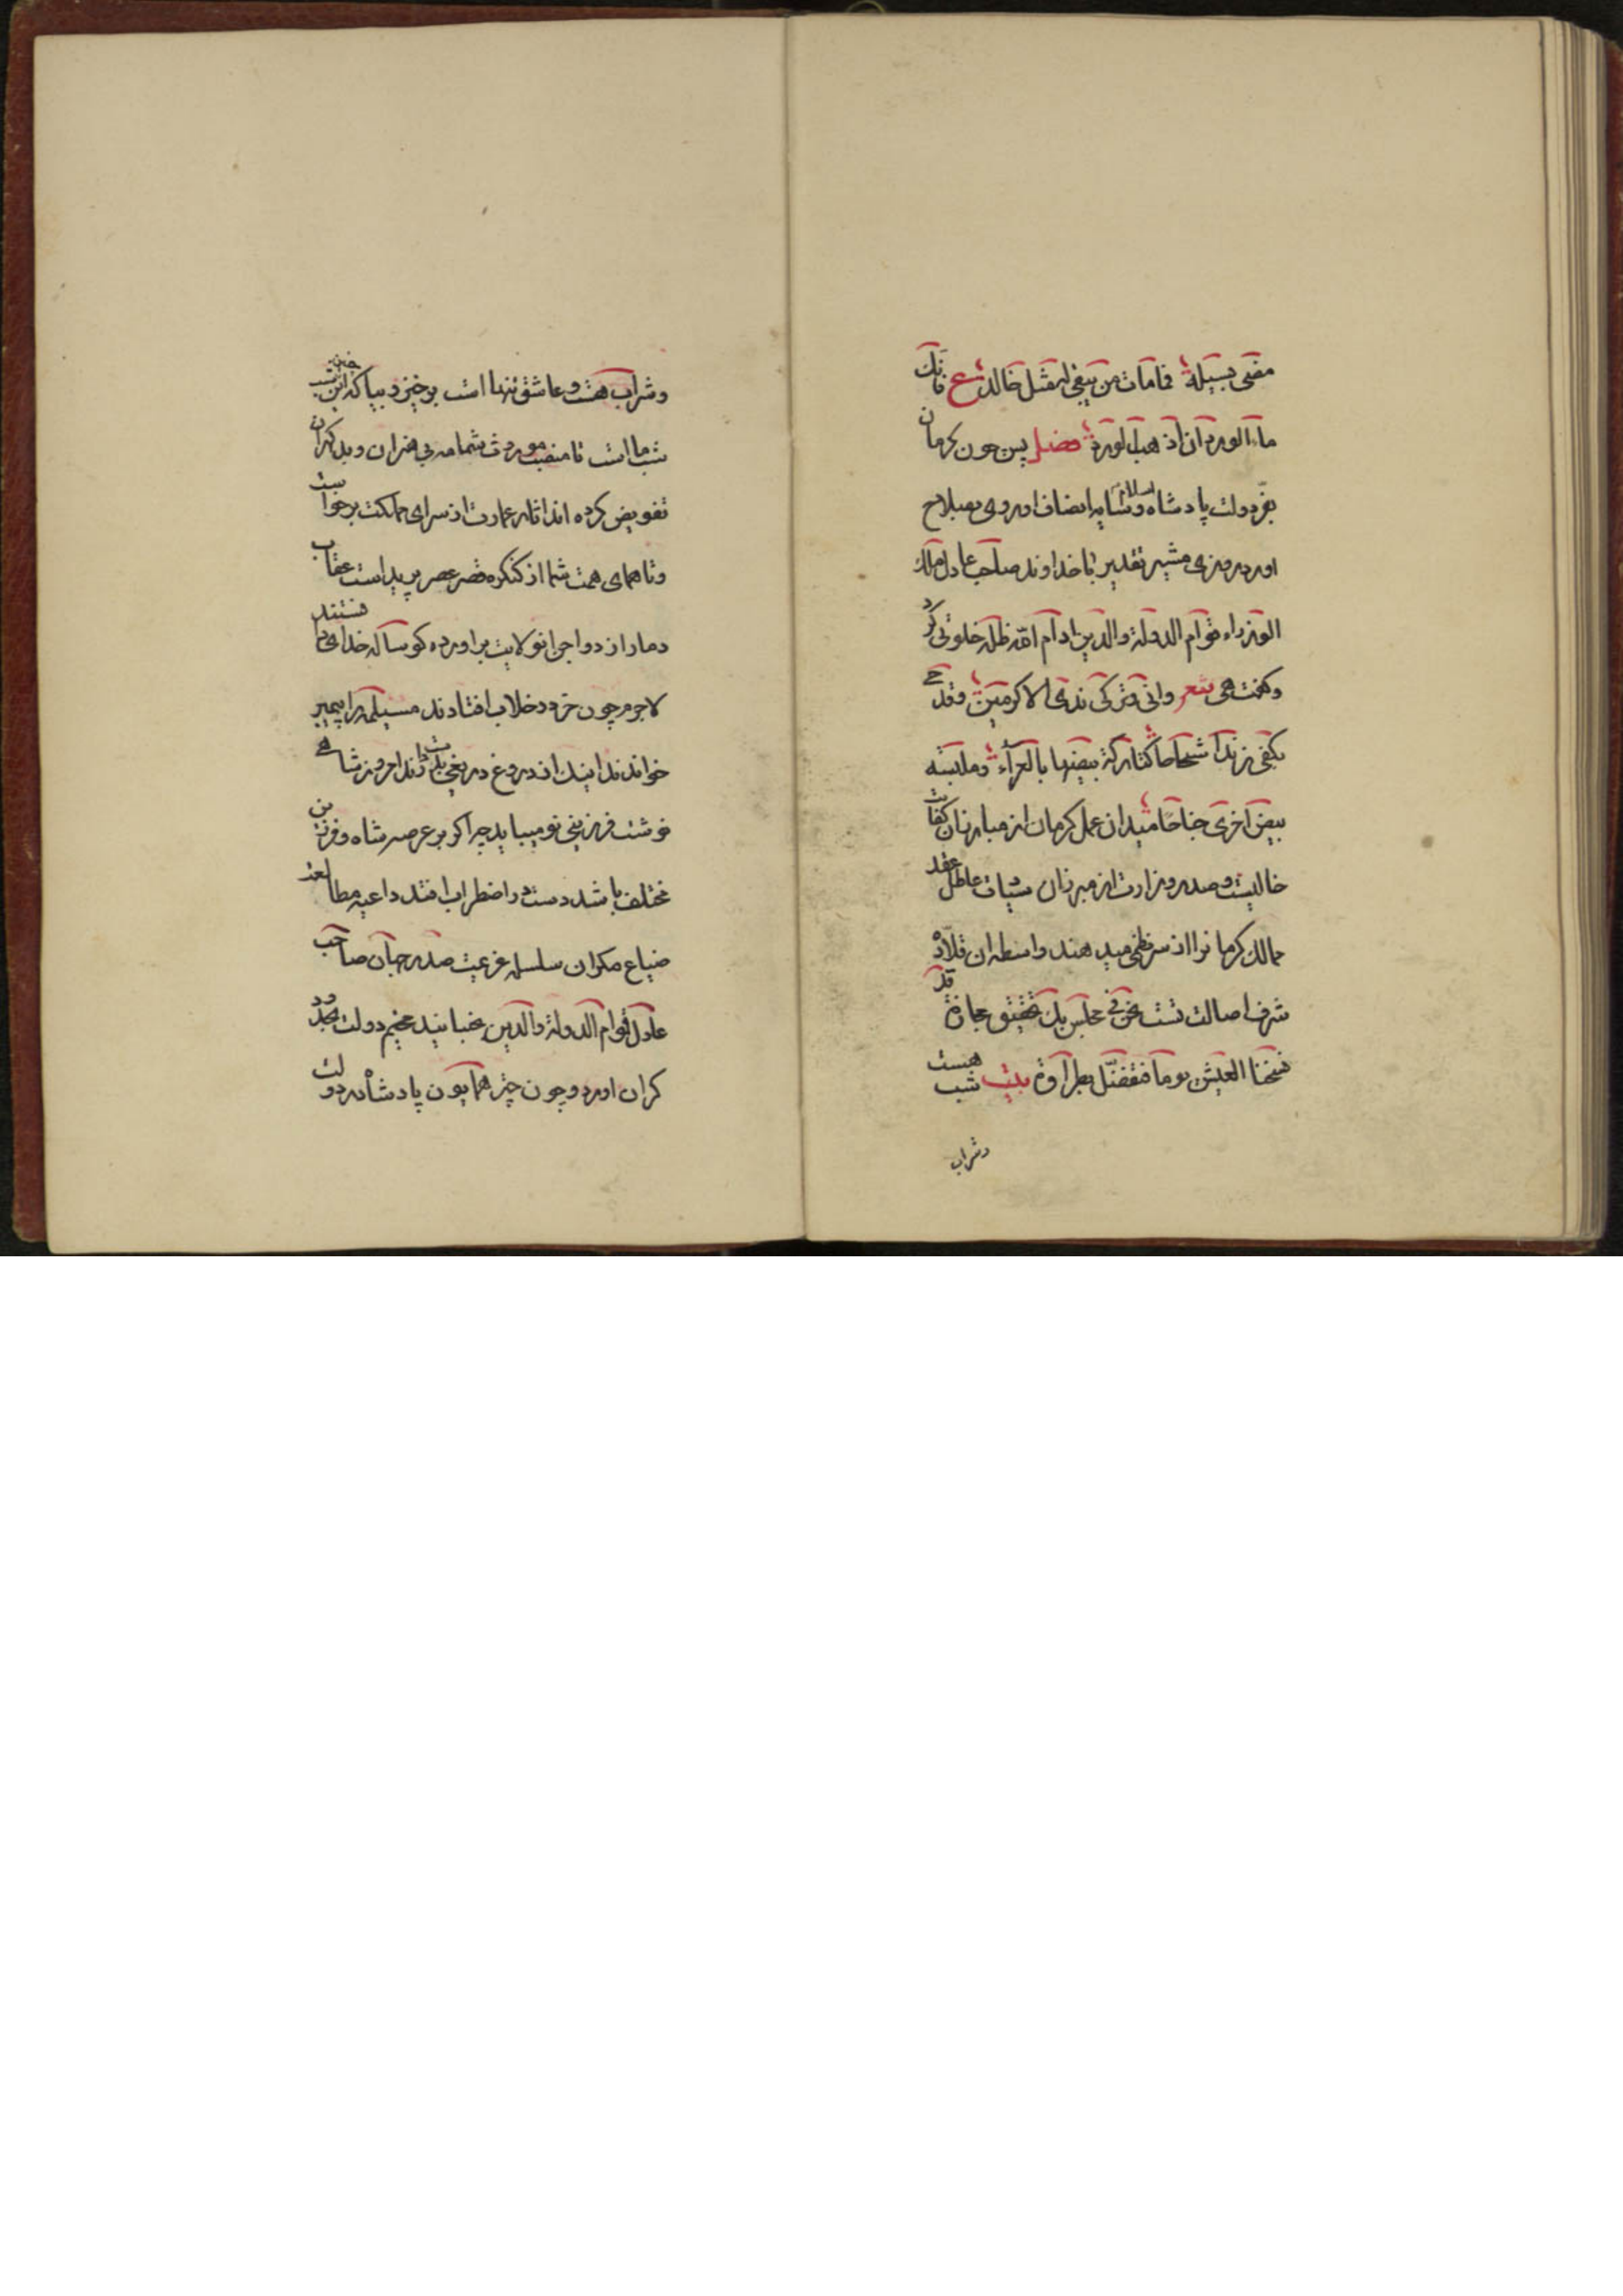 مضی بسبیله فما مات من یبقی له مثل خالد ع فانک
ماء الورد ان ذهب الورد فصل پس چون کرمان
بفر دولت پادشاه و سایه انصاف او روی بصلاح
اورد روزی مشیر تقدیر با خداوند صاحب عادل ملک
الوزراء قوام الدولة والدین ادام الله ظله خلوتی کرد
وگفت هی شعر وانی وترکی ندی الاکرمین وقدحی
بکفی زندا شحاحا کتارکة بیضها بالعراء وملبسة
بیض اخری جناحا میدان عمل کرمان از مبارزان کفایت
خالیست و صدر وزارت از مبرزان عاطل عقد
ممالک کرمانرا از سر نظمی میدهند واسطه ان قلاده
شرف اصالت تست نحن فی مجلس یک بتحقیق مجازه قد
نسخنا العیش یوما فتفضل بطراوة بیت هست شب
وشراب
وشراب هست و عاشق تنها است برخیز و بیا که این چنین شب
شب ما است تا منصب شما مدبری خران و بد کهران
تفویض کرده اند اثار عمارت از سرای مملکت برخواست
وتا همای همت شما از کنگره قصر عصر بر پریداست عقاب
دمار از دواجن ان ولایت براورده گوساله خدایی
لاجرم چون خر در خلاب افتادند مسیلمه را پیمبر
خواندند اینک از دروغ در یغی امروز شاهی
خوشت فرزینی نو میباید چه اگر بر عرصه شاه و فرزین
مختلف باشد دست در اضطراب افتد داعیه مطالعت
ضیاع مکران سلسله عزیمت صدر جهان صاحب
عادل قوام الدولة والدین بجنبانید مخیم دولت بحدود
مکران اورد و چون چتر همایون پادشاه در دولت